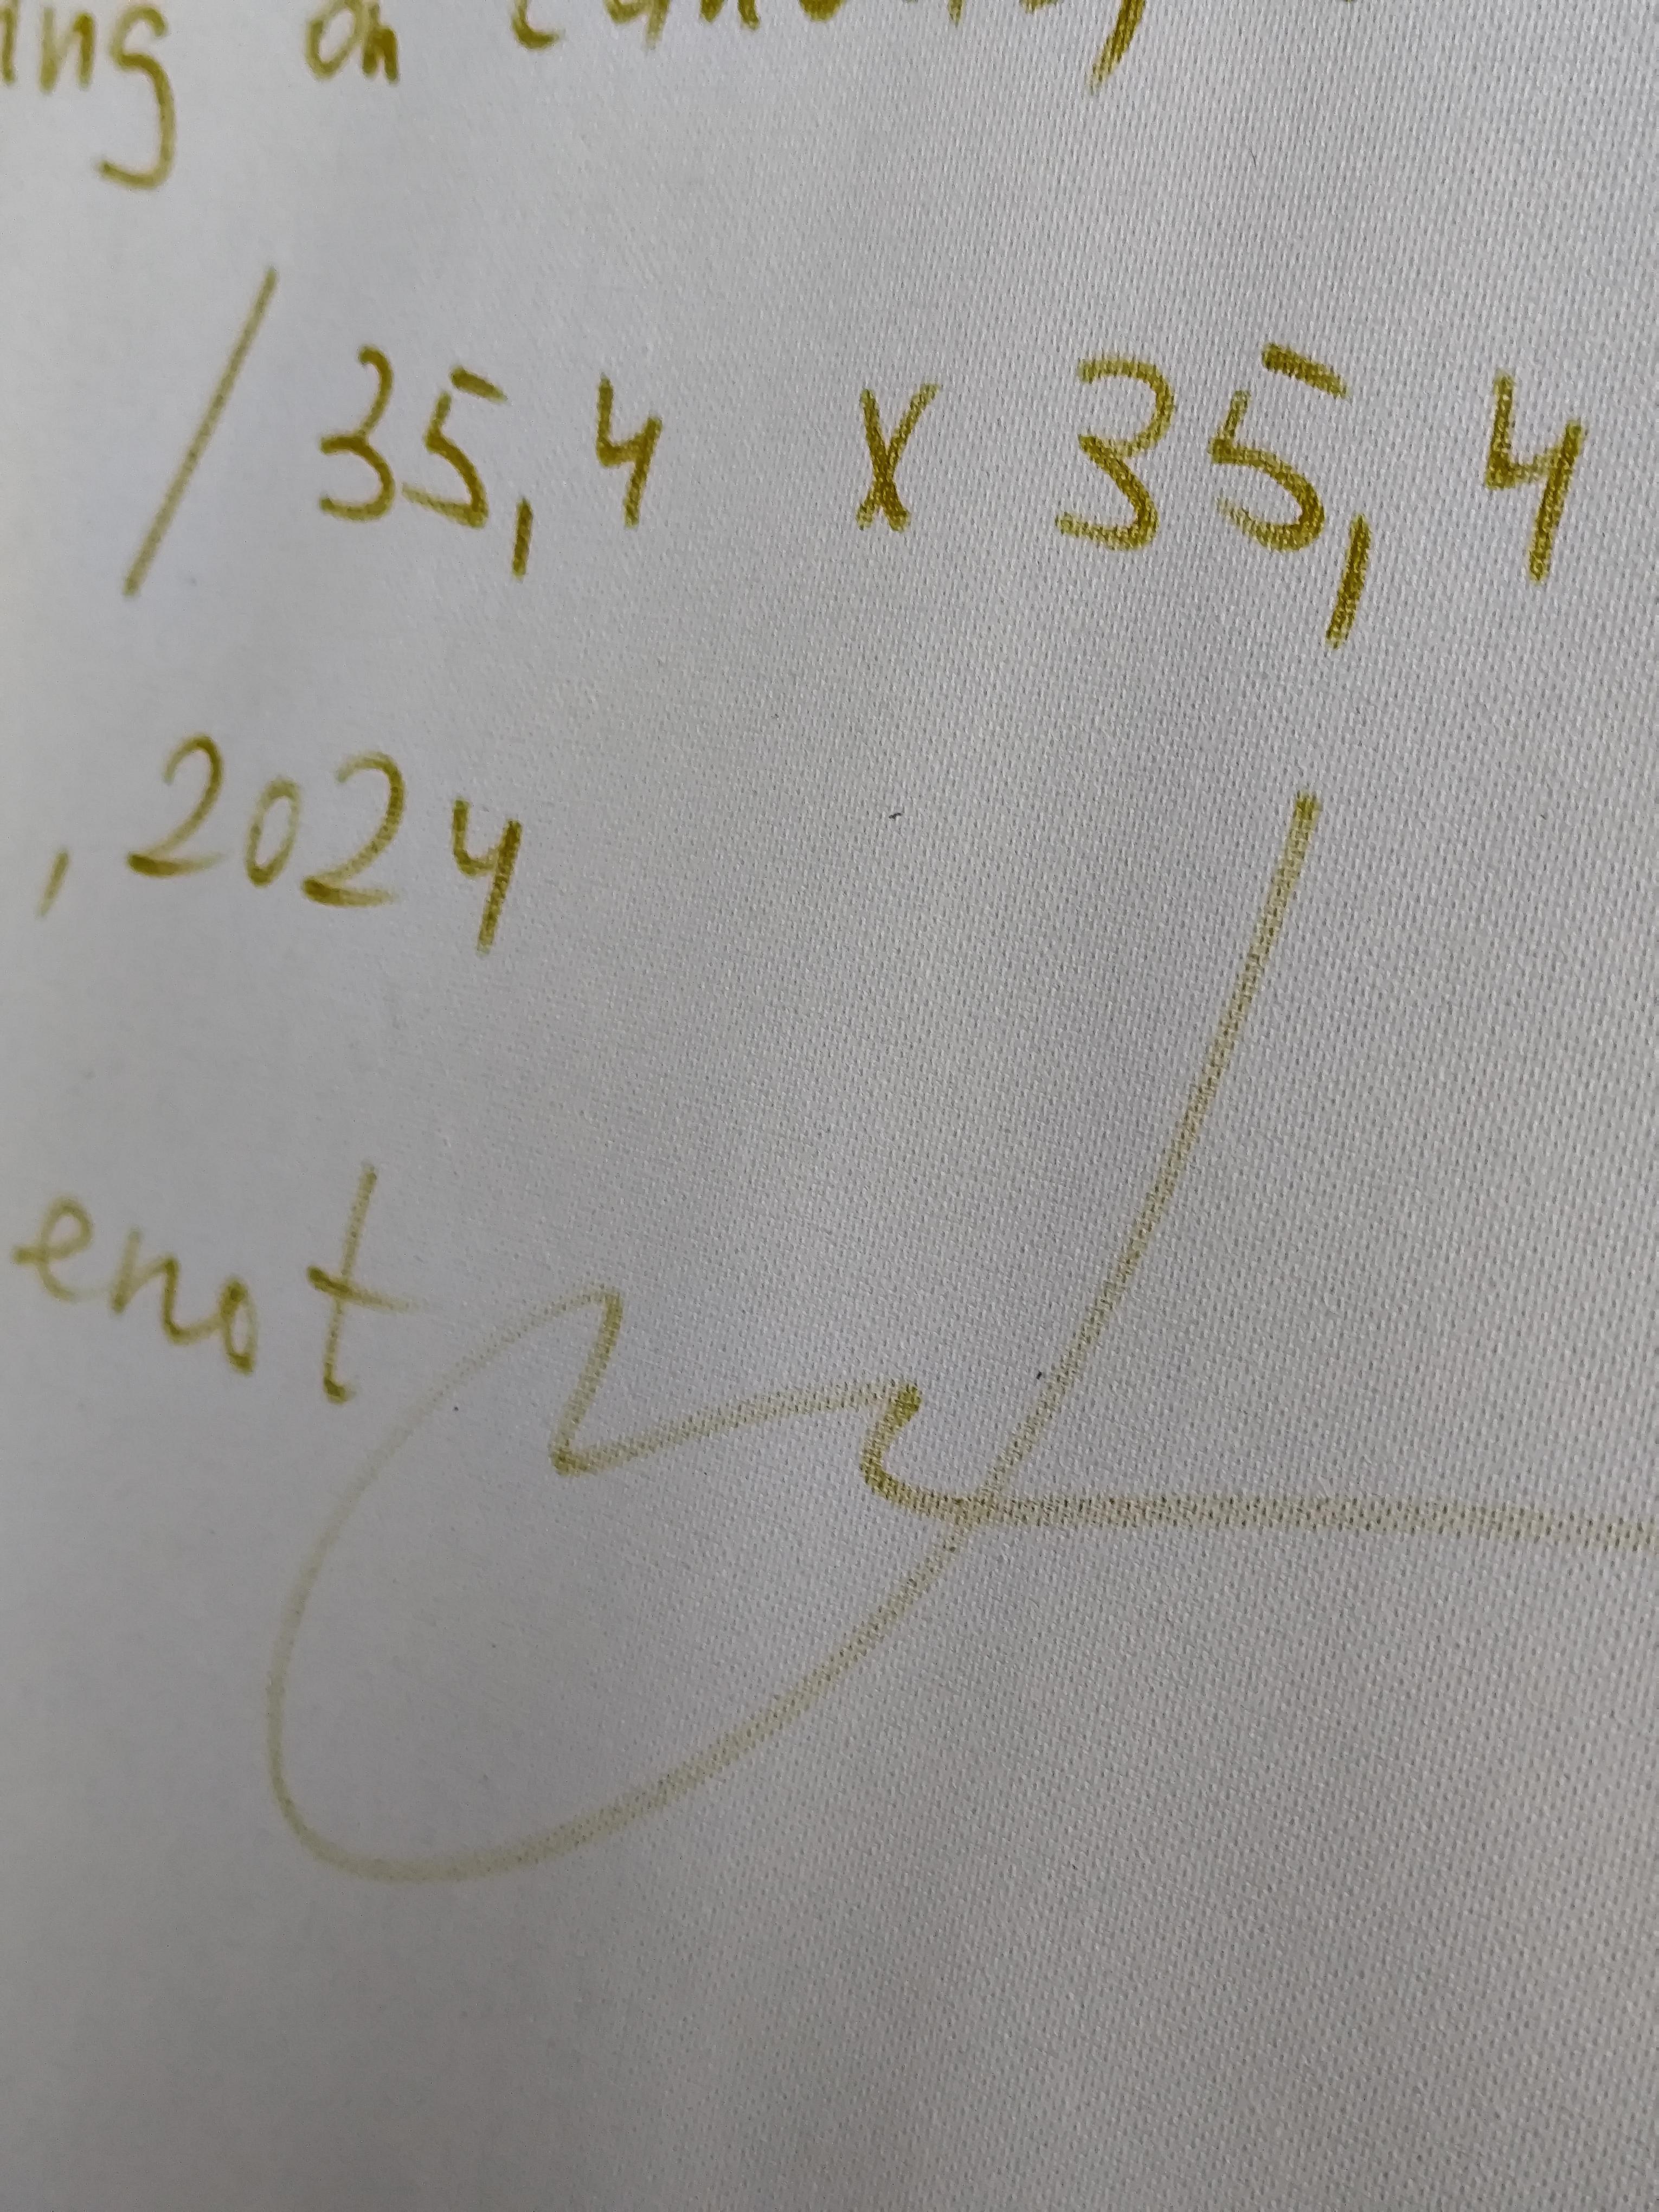 ing on canvas,
/ 35,4 x 35,4
, 2024
enot